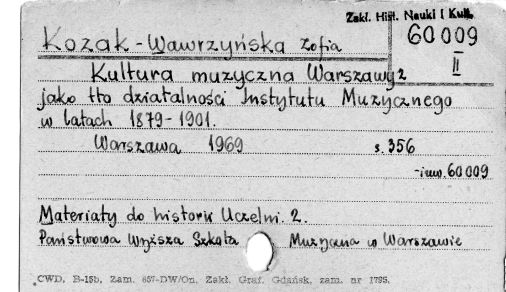 Zakł. Hist. Nauki i Kult.
Kozak-Wawrzyńska Zofia
60 009
II
Kultura muzyczna Warszawy
jako tło działalności Instytutu Muzycznego
w latach 1879-1901.
Warszawa 1969 s. 356
-inw. 60 009
Materiały do historii Uczelni. 2.
Państwowa Wyższa Szkoła Muzyczna w Warszawie
CWD, B-15b, Zam. 657-DW/On. Zakł. Graf. Gdańsk, zam. nr 1795.